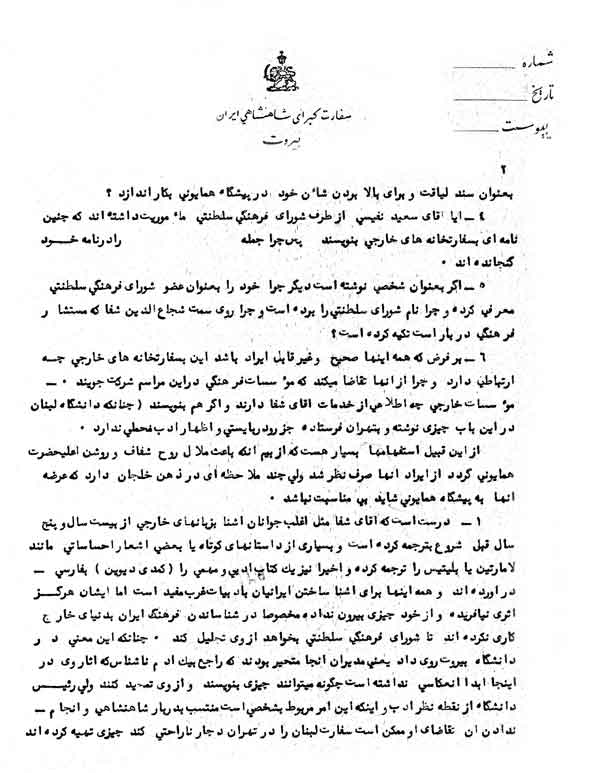 شماره
تاریخ
پیوست
سفارت کبرای شاهنشاهی ایران
بیروت
۲
بعنوان سند لیاقت و برای بالا بودن شان خود در پیشگاه همایونی بکار اندازد ؟
٤ ـ ایا اقای سعید نفیسی از طرف شورای فرهنگی سلطنتی ماموریت داشته اند که چنین
نامه ای بسفارتخانه های خارجی بنویسند پس چرا جمله را در نامه خود
گنجانده اند ٠
٥ ـ اگر بعنوان شخصی نوشته است دیگر چرا خود را بعنوان عضو شورای فرهنگی سلطنتی
معرفی کرده و چرا نام شورای سلطنتی را برده است و چرا روی سمت شجاع الدین شفا که مستشار
فرهنگی دربار است تکیه کرده است ؟
٦ ـ بر فرض که همه اینها صحیح وغیر قابل ایراد باشد این بسفارتخانه های خارجی چه
ارتباطی دارد و چرا از انها تقاضا میکند که موسسات فرهنگی در این مراسم شرکت جویند ٠ ـ
موسسات خارجی چه اطلاعی از خدمات اقای شفا دارند و اگر هم بنویسند ( چنانکه دانشگاه لبنان
در این باب چیزی نوشته و بتهران فرستاده جز رودربایستی و اظهار ادب محملی ندارد ٠
از این قبیل استفهامها بسیار هست که از بیم انکه باعث ملال روح شفاف و روشن اعلیحضرت
همایونی گردد از ایراد انها صرف نظر شد ولی چند ملاحظه ای در ذهن خلجان دارد که عرضه
انها به پیشگاه همایونی شاید بی مناسبت نباشد ٠
١ ـ درست است که اقای شفا مثل اغلب جوانان اشنا بزبانهای خارجی از بیست سال و پنج
سال قبل شروع بترجمه کرده است و بسیاری از داستانهای کوتاه یا بعضی اشعار احساساتی مانند
لامارتین یا بلیتیس را ترجمه کرده و اخیرا نیز یک کتاب ادبی و مهمی را ( کمدی دیوین ) بفارسی ـ
در اورده اند و همه اینها برای اشنا ساختن ایرانیان بادبیات غرب مفید است اما ایشان هرگز
اثری نیافریده و از خود چیزی بیرون نداده مخصوصا در شناساندن فرهنگ ایران بدنیای خارج
کاری نکرده اند تا شورای فرهنگی سلطنتی بخواهد از وی تجلیل کند ٠ چنانکه این معنی در
دانشگاه بیروت روی داد یعنی مدیران انجا متحیر بودند که راجع بیک ادم ناشناس که اثار وی در
اینجا ابدا انعکاسی نداشته است چگونه میتوانند چیزی بنویسند و از وی تمجید کنند ولی رئیس
دانشگاه از نقطه نظر ادب و اینکه این امر مربوط بشخصی است منتسب بدربار شاهنشاهی و انجام ـ
ندادن ان تقاضای او ممکن است سفارت لبنان را در تهران دچار ناراحتی کند چیزی تهیه کرده اند